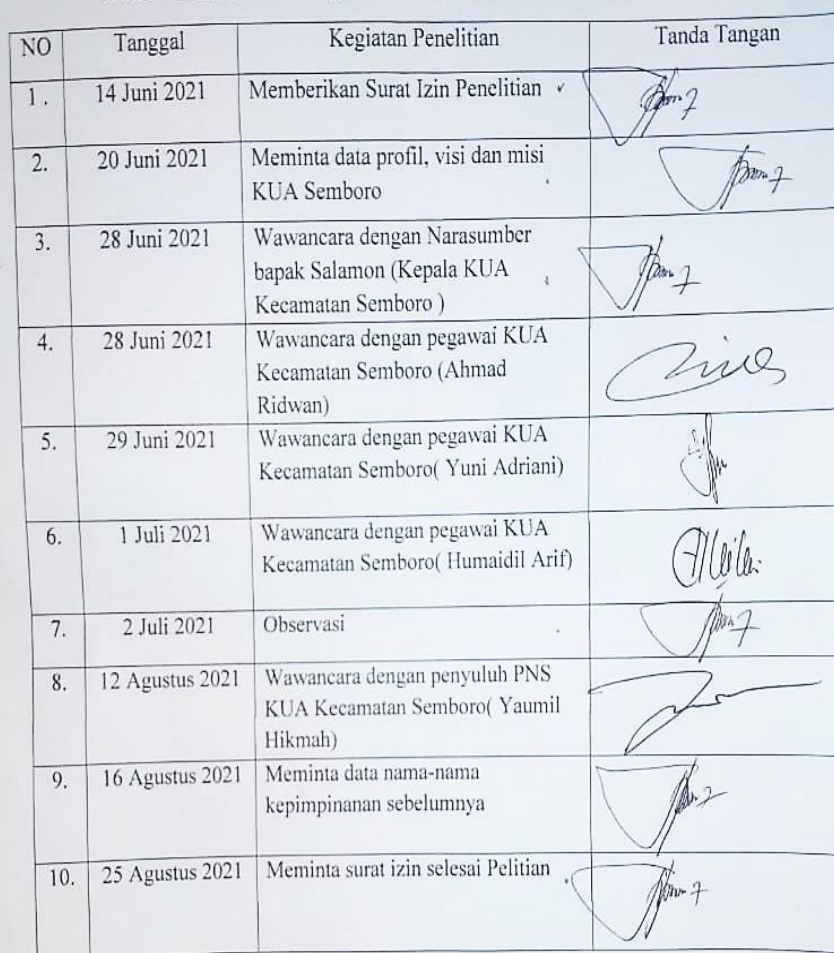 NO Tanggal Kegiatan Penelitian Tanda Tangan
1 . 14 Juni 2021 Memberikan Surat Izin Penelitian
2. 20 Juni 2021 Meminta data profil, visi dan misi
KUA Semboro
3. 28 Juni 2021 Wawancara dengan Narasumber
bapak Salamon (Kepala KUA
Kecamatan Semboro )
4. 28 Juni 2021 Wawancara dengan pegawai KUA
Kecamatan Semboro (Ahmad
Ridwan)
5. 29 Juni 2021 Wawancara dengan pegawai KUA
Kecamatan Semboro( Yuni Adriani)
6. 1 Juli 2021 Wawancara dengan pegawai KUA
Kecamatan Semboro( Humaidil Arif)
7. 2 Juli 2021 Observasi
8. 12 Agustus 2021 Wawancara dengan penyuluh PNS
KUA Kecamatan Semboro( Yaumil
Hikmah)
9. 16 Agustus 2021 Meminta data nama-nama
kepimpinanan sebelumnya
10. 25 Agustus 2021 Meminta surat izin selesai Pelitian